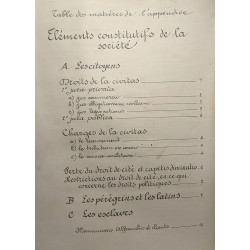 Table des matières de l'appendice
Eléments constitutifs de la
société
A Les citoyens
Droits de la civitas
1° jura privata
a) jus commercii
b) jus
c) jus
2° jura publica
Charges de la civitas
a) le recensement
b) le tributum ex censu
c) le service militaire
Perte du droit de cité et capitis deminutio
Restrictions au droit de cité, en ce qui
concerne les droits politiques
B Les pérégrins et les latins
C Les esclaves